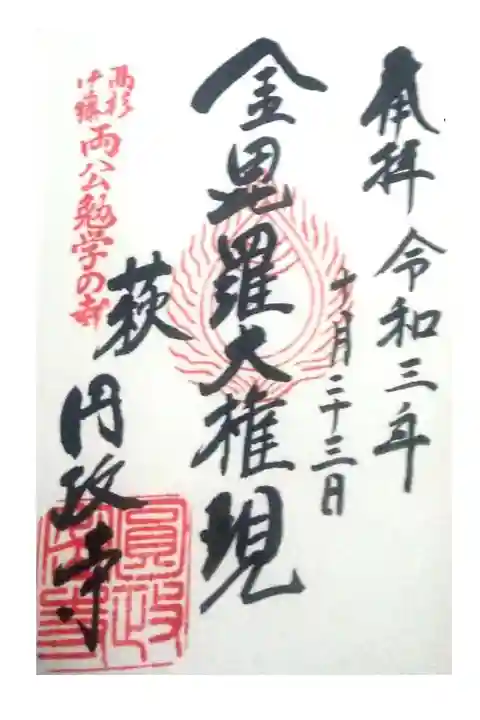 奉拝 令和三年
十月二十三日
金毘羅大権現
萩 円政寺
高杉
伊藤
両公勉学の寺
圓政